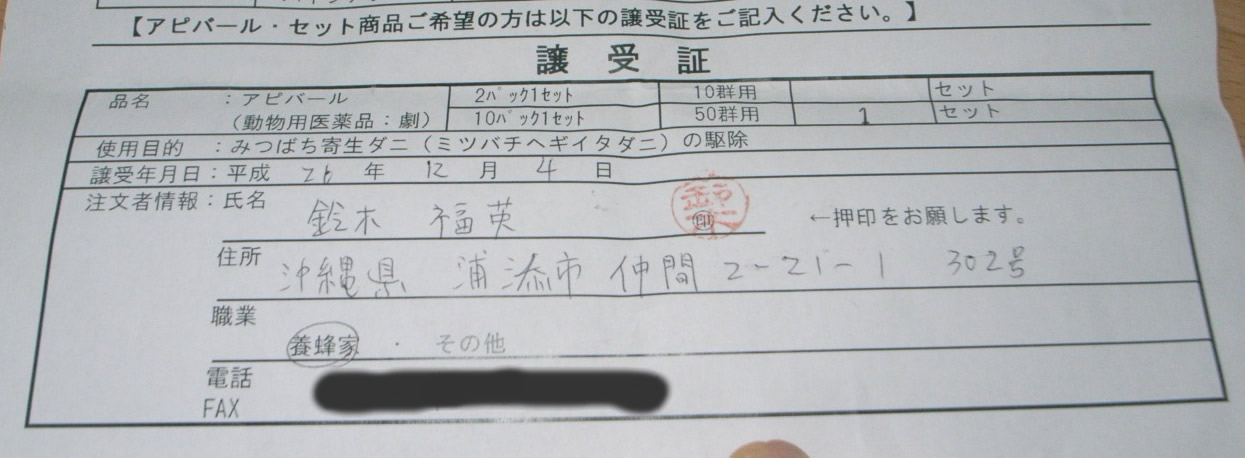 【アピバール・セット商品ご希望の方は以下の譲受証をご記入ください。】
譲受証
品名 ：アピバール 2パック1セット 10群用 セット
（動物用医薬品：劇） 10パック1セット 50群用 1 セット
使用目的 ：みつばち寄生ダニ（ミツバチヘギイタダニ）の駆除
譲受年月日：平成 26 年 12 月 4 日
注文者情報：氏名 鈴木 福英 ㊞ ←押印をお願します。
住所 沖縄県 浦添市 仲間 2-21-1 302号
職業
養蜂家 ・ その他
電話
FAX